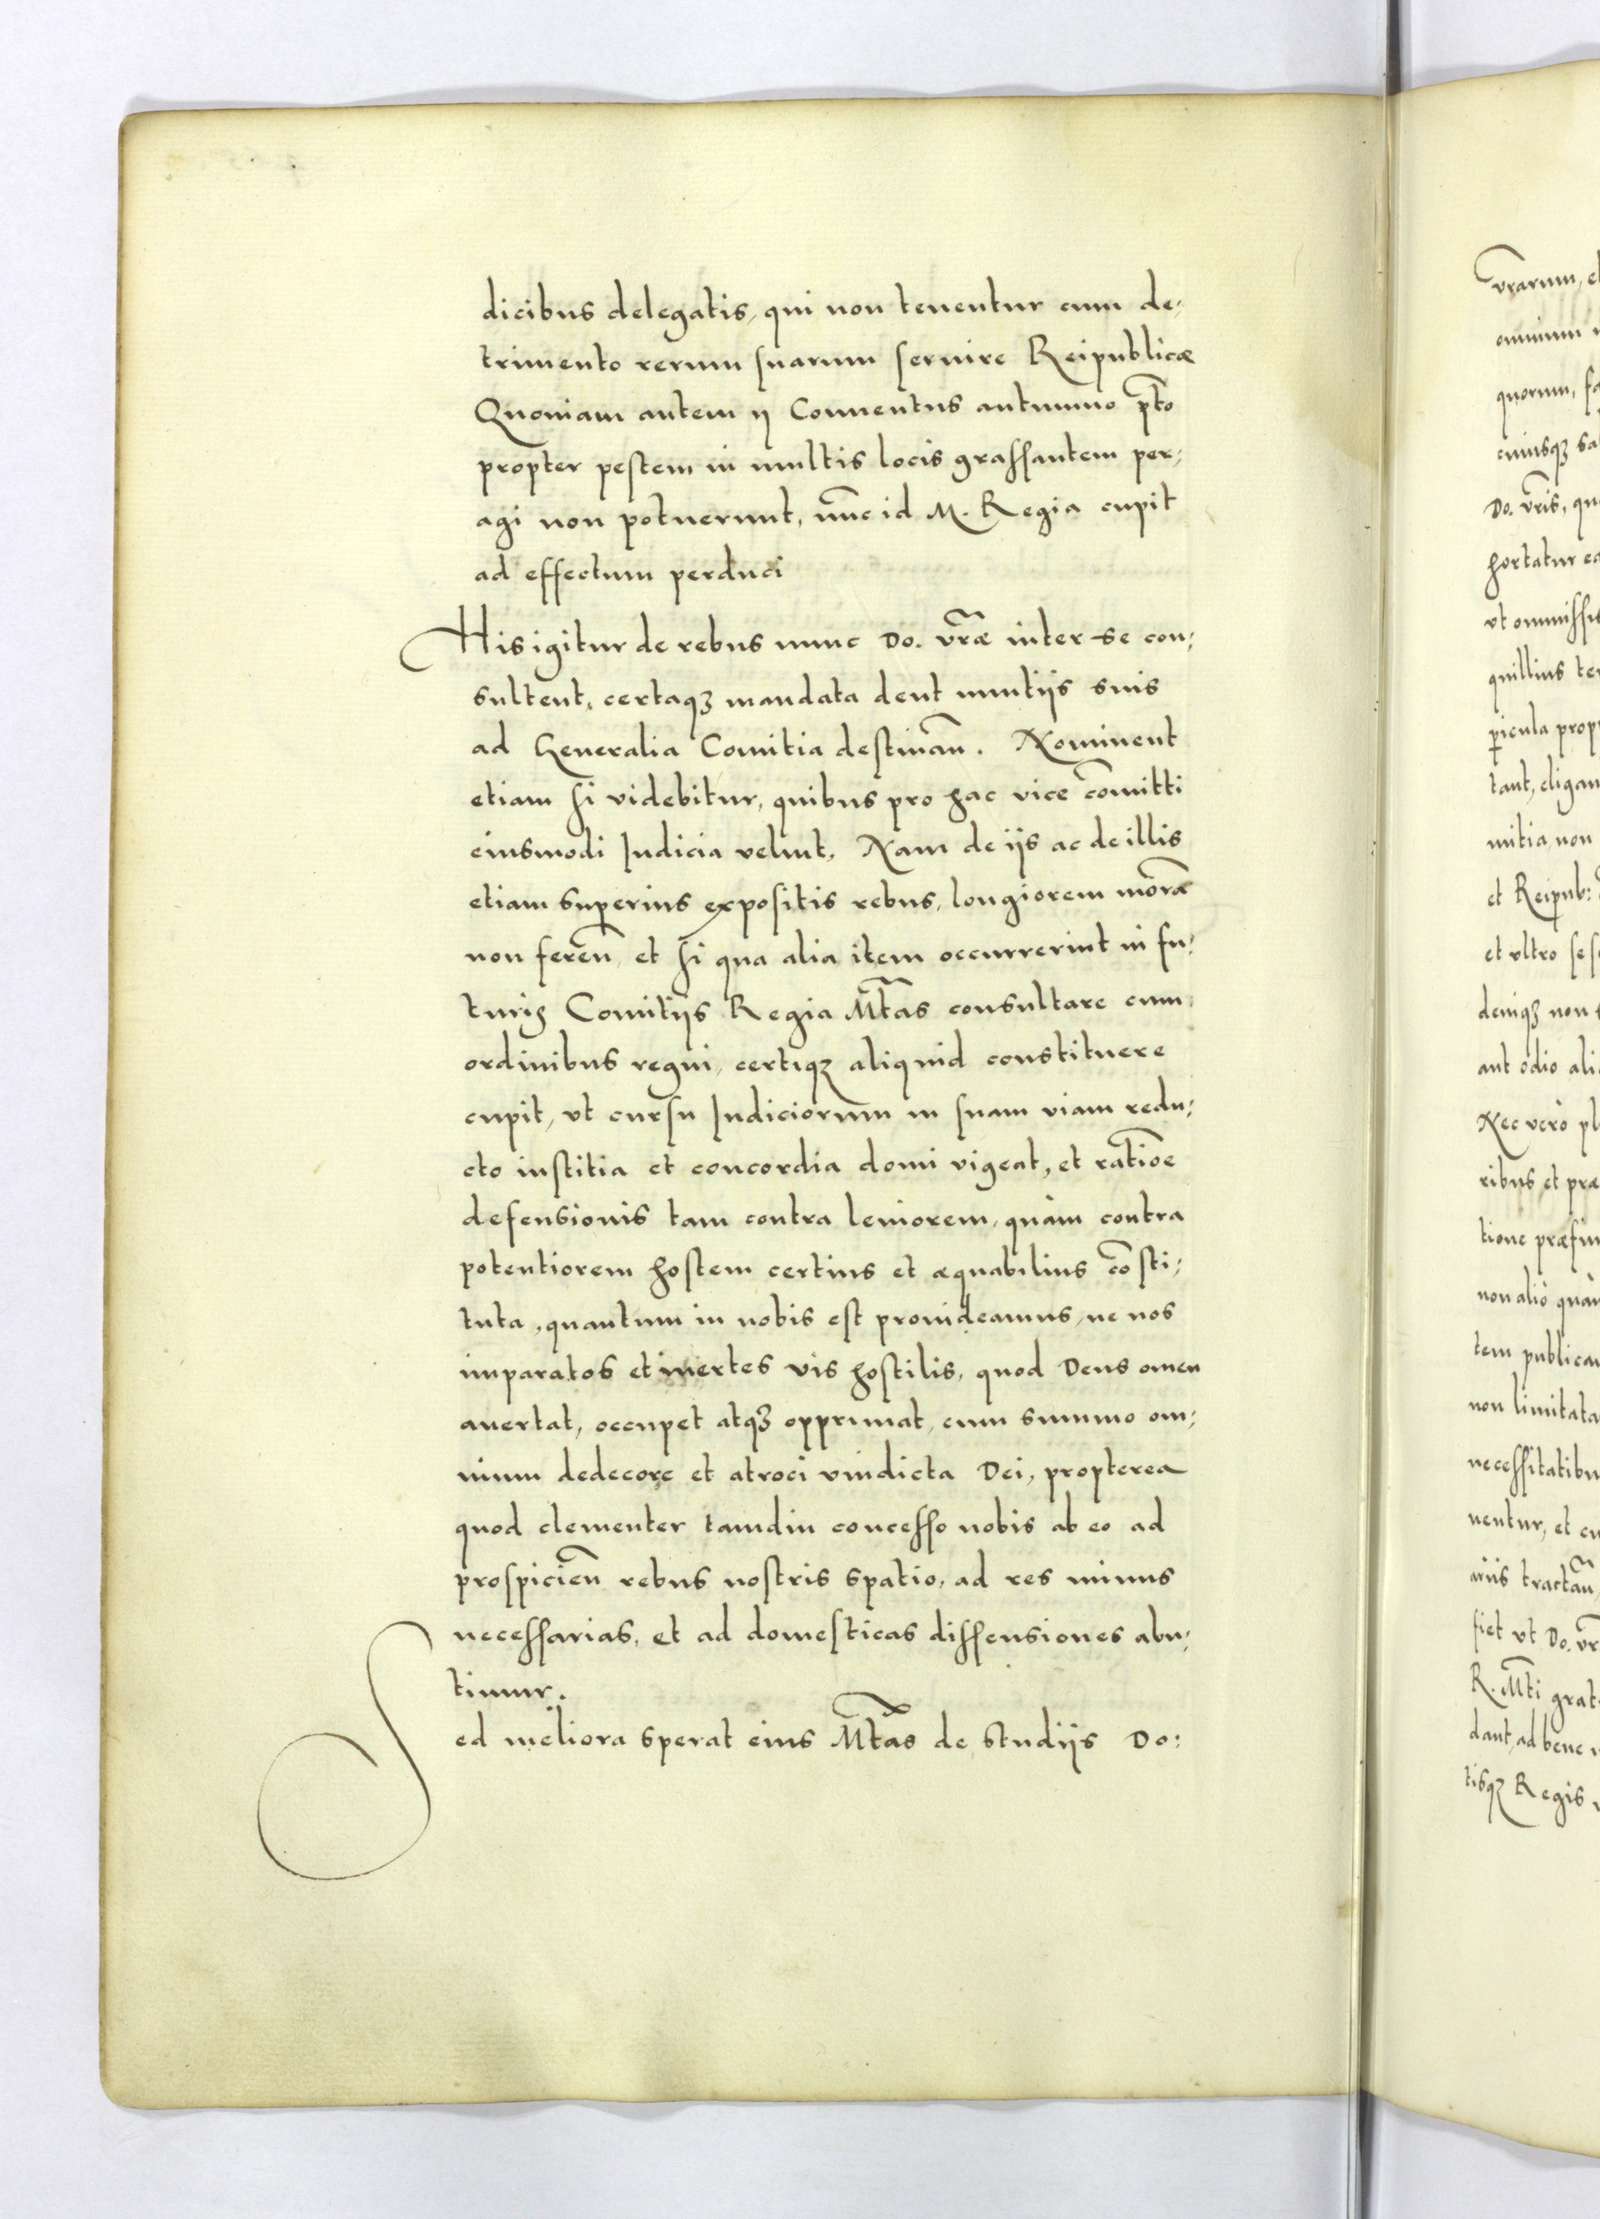 dicibus delegatis, qui non tenentur cum de,
trimento rerum suarum seruire Reipublicæ
Quoniam autem ij Conuentus autumno p̃to
propter pestem in multis locis grassantem per,
agi non potuerunt, nũc id M. Regia cupit
ad effectum perduci
His igitur de rebus nunc Do. vr̃æ inter se con,
sultent, certaqꝫ mandata dent nuntijs suis
ad Generalia Comitia destinañ. Nominent
etiam si videbitur, quibus pro hac vice cõmitti
eiusmodi Iudicia velint, Nam de ijs ac de illis
etiam superius expositis rebus, longiorem morã
non fereñ, et si qua alia item occurrerint in fu,
turis Comitijs Regia Mt̃as consultare cum
ordinibus regni, certiqꝫ aliquid constituere
cupit, vt cursu Iudiciorum in suam viam redu,
cto iustitia et concordia domi vigeat, et ratiõe
defensionis tam contra leuiorem, quàm contra
potentiorem hostem certius et æquabilius cõsti,
tuta, quantum in nobis est prouideamus, ne nos
imparatos et inertes vis hostilis, quod Deus omen
auertat, occupet atqꝫ opprimat, cum summo om,
nium dedecore et atroci vindicta Dei, propterea
quod clementer tamdiu concesso nobis ab eo ad
prospicieñ rebus nostris spatio, ad res minus
necessarias, et ad domesticas dissensiones abu,
timur.
Sed meliora sperat eius Mt̃as de studijs Do:
vr̃arum, et
omnium
quorum, fa
cuiusqꝫ sa
Do. vr̃is, qu
hortatur ea
vt ommissis
quillius te
pericula prop
tant, eligan
mitia, non
et Reipub:
et vltro sese
deniqꝫ non
aut odio ali
Nec verò pl
ribus et præ
tione præfin
non aliò quàm
tem publicam
non limitata
necessitatibu
uentur, et cu
arijs tractañ,
fiet vt Do. vr̃
R. Mt̃i grat
dant, ad bene
tisqꝫ Regis